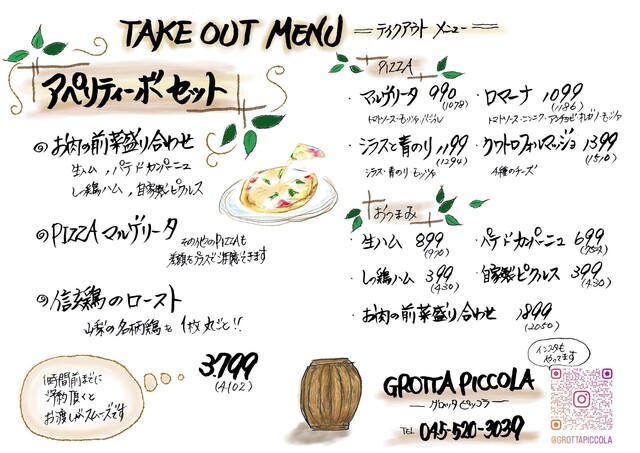 TAKE OUT MENU
テイクアウト メニュー
アペリティーボ セット
お肉の前菜盛り合わせ
生ハム , パテドカンパーニュ
しっとり鶏ハム , 自家製ピクルス
PIZZA マルゲリータ
その他のPIZZAも
差額をプラスでご用意できます
信玄鶏のロースト
山梨の名柄鶏を 1枚丸ごと!!
1時間前までに
ご予約頂くと
お渡しがスムーズです
3799
(4102)
PIZZA
マルゲリータ 990
(1078)
トマトソース・モッツァ バジル
ロマーナ 1099
(1186)
トマトソース・ニンニク・アンチョビ・オレガノ・モッツァ
シラスと青のり 1199
(1294)
シラス・青のり・モッツァ
クワトロフォルマッジョ 1399
(1510)
4種のチーズ
おつまみ
生ハム 899
(970)
パテドカンパーニュ 699
(754)
しっとり鶏ハム 399
(430)
自家製ピクルス 399
(430)
お肉の前菜盛り合わせ 1899
(2050)
インスタも
やってます
GROTTA PICCOLA
グロッタ ピッコラ
TEL 045-520-3039
@GROTTAPICCOLA